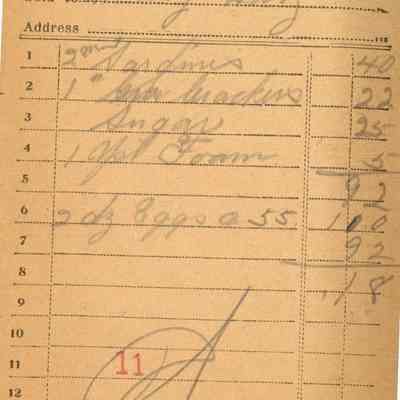 Address
1 2 Sardines 40
2 1 " Crackers 22
3 Sugar 25
4 1 Yst Foam 5
5 92
6 2 dz Eggs @ 55 110
7 92
8 .18
9
10
11 11
12